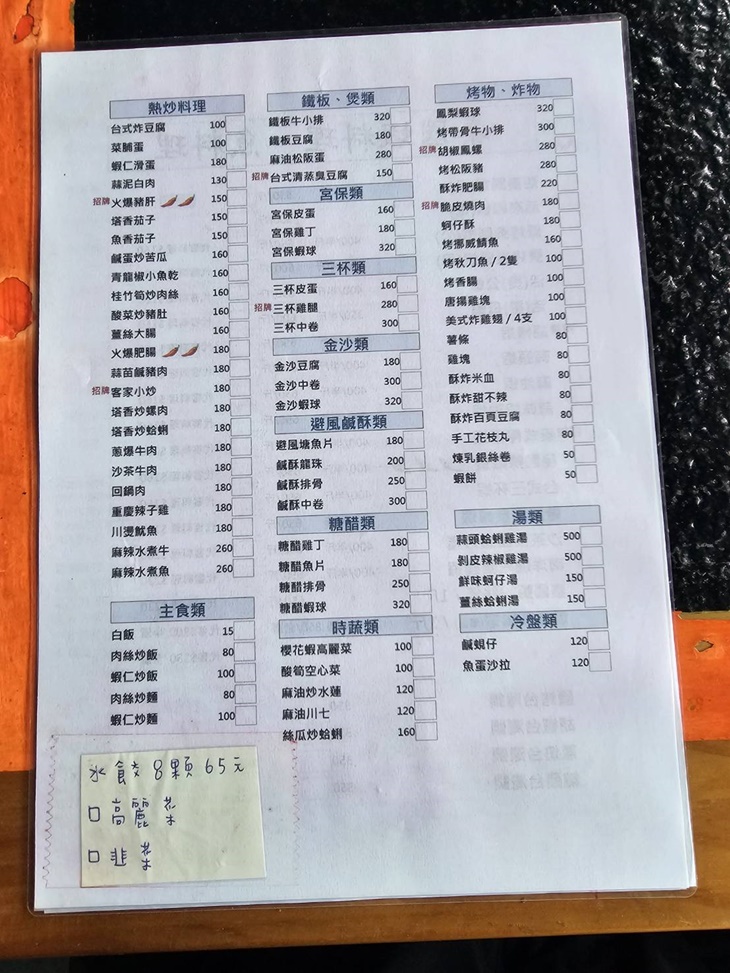 熱炒料理
台式炸豆腐 100
菜脯蛋 100
蝦仁滑蛋 180
蒜泥白肉 130
招牌 火爆豬肝 150
塔香茄子 150
魚香茄子 150
鹹蛋炒苦瓜 160
青龍椒小魚乾 160
桂竹筍炒肉絲 160
酸菜炒豬肚 160
薑絲大腸 160
火爆肥腸 180
蒜苗鹹豬肉 180
招牌 客家小炒 180
塔香炒螺肉 180
塔香炒蛤蜊 180
蔥爆牛肉 180
沙茶牛肉 180
回鍋肉 180
重慶辣子雞 180
川燙魷魚 180
麻辣水煮牛 260
麻辣水煮魚 260
主食類
白飯 15
肉絲炒飯 80
蝦仁炒飯 100
肉絲炒麵 80
蝦仁炒麵 100
水餃 8顆 65元
口 高麗菜
口 韭菜
鐵板、煲類
鐵板牛小排 320
鐵板豆腐 180
麻油松阪蛋 280
招牌 台式清蒸臭豆腐 150
宮保類
宮保皮蛋 160
宮保雞丁 180
宮保蝦球 320
三杯類
三杯皮蛋 160
招牌 三杯雞腿 280
三杯中卷 300
金沙類
金沙豆腐 180
金沙中卷 300
金沙蝦球 320
避風鹹酥類
避風塘魚片 180
鹹酥龍珠 200
鹹酥排骨 250
鹹酥中卷 300
糖醋類
糖醋雞丁 180
糖醋魚片 180
糖醋排骨 250
糖醋蝦球 320
時蔬類
櫻花蝦高麗菜 100
酸筍空心菜 100
麻油炒水蓮 120
麻油川七 120
絲瓜炒蛤蜊 160
烤物、炸物
鳳梨蝦球 320
烤帶骨牛小排 300
招牌 胡椒鳳螺 280
烤松阪豬 280
酥炸肥腸 220
招牌 脆皮燒肉 180
蚵仔酥 180
烤挪威鯖魚 160
烤秋刀魚 / 2隻 100
烤香腸 100
唐揚雞塊 100
美式炸雞翅 / 4支 100
薯條 80
雞塊 80
酥炸米血 80
酥炸甜不辣 80
酥炸百頁豆腐 80
手工花枝丸 80
煉乳銀絲卷 50
蝦餅 50
湯類
蒜頭蛤蜊雞湯 500
剝皮辣椒雞湯 500
鮮味蚵仔湯 150
薑絲蛤蜊湯 150
冷盤類
鹹蜆仔 120
魚蛋沙拉 120